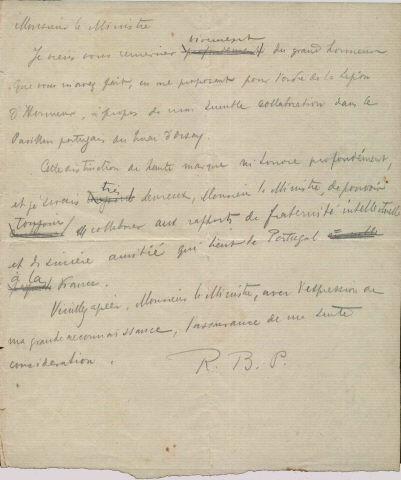 Monsieur le Ministre
Je viens vous remercier vivement du grand honneur
que vous m'avez fait, en me proposant pour l'ordre de la Légion
d'Honneur, à propos de mon humble collaboration dans le
Pavillon portugais du Quai d'Orsay.
Cette distinction de haute marque m'honore profondément,
et je serais très heureux, Monsieur le Ministre, de pouvoir
toujours collaborer aux rapports de fraternité intellectuelle
et de sincère amitié qui lient le Portugal
à la France.
Veuillez agréer, Monsieur le Ministre, avec l'expression de
ma grande reconnaissance, l'assurance de ma haute
considération.
R. B. P.